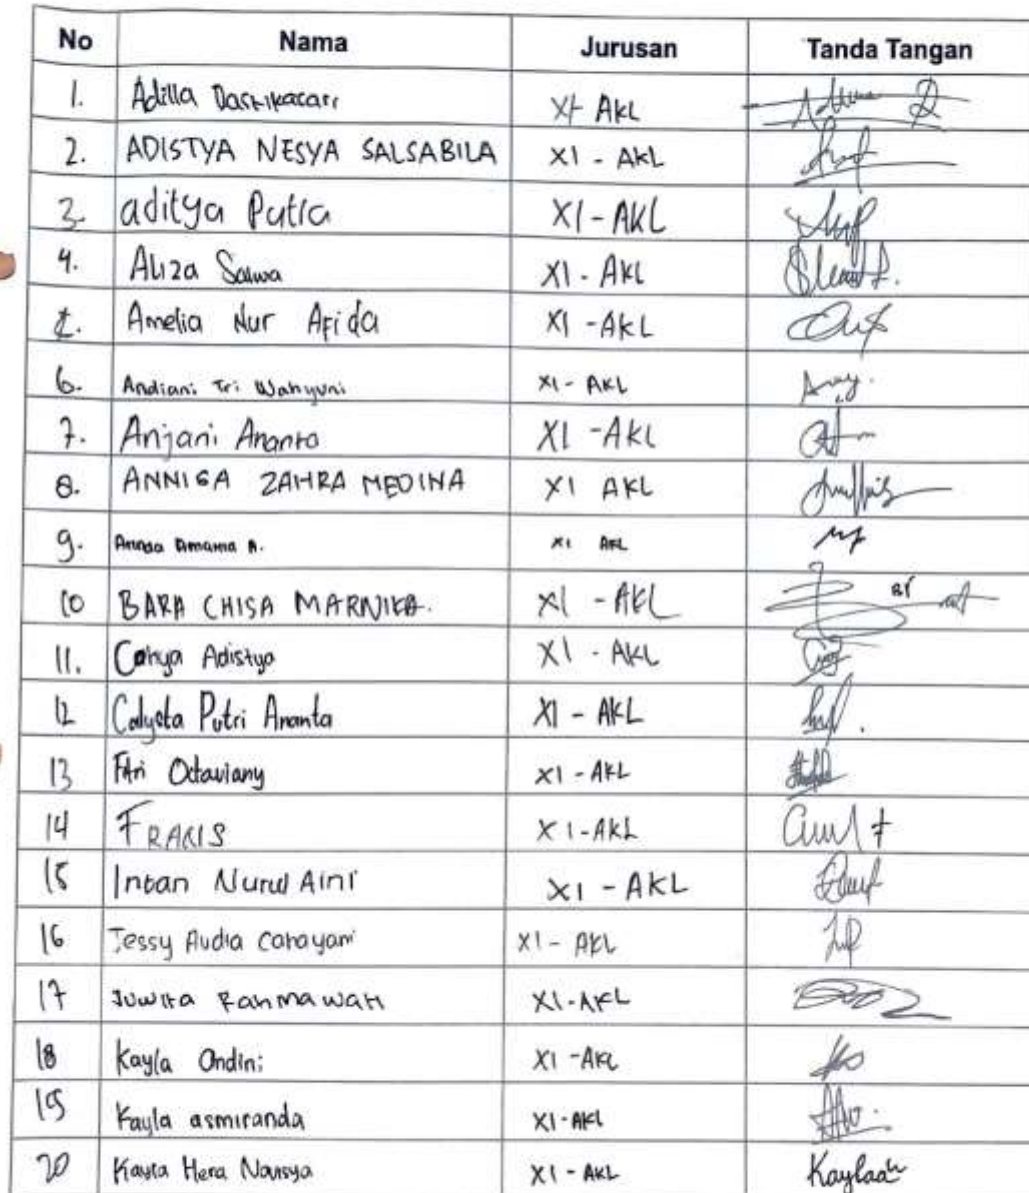 No Nama Jurusan Tanda Tangan
1. Adilla XI AKL
2. ADISTYA NESYA SALSABILA XI - AKL
3. aditya Putra XI - AKL
4. Aliza Salwa XI - AKL
5. Amelia Nur Afida XI - AKL
6. Andiani Tri Wahyuni XI - AKL
7. Anjani Ananta XI - AKL
8. ANNISA ZAHRA MEDINA XI AKL
9. Amama A. XI AKL
10 BARA CHISA MARNIKA. XI - AKL
11. Cahya Adistya XI - AKL
12 Calysta Putri Ananta XI - AKL
13 Fitri Octaviany XI - AKL
14 XI - AKL
15 Intan Nurul Aini XI - AKL
16 Jessy Audia Cahayani XI - AKL
17 Juwita Rahmawati XI - AKL
18 Kayla Ondini XI - AKL
19 Kayla asmiranda XI - AKL
20 Kayla Hera XI - AKL Kaylaah